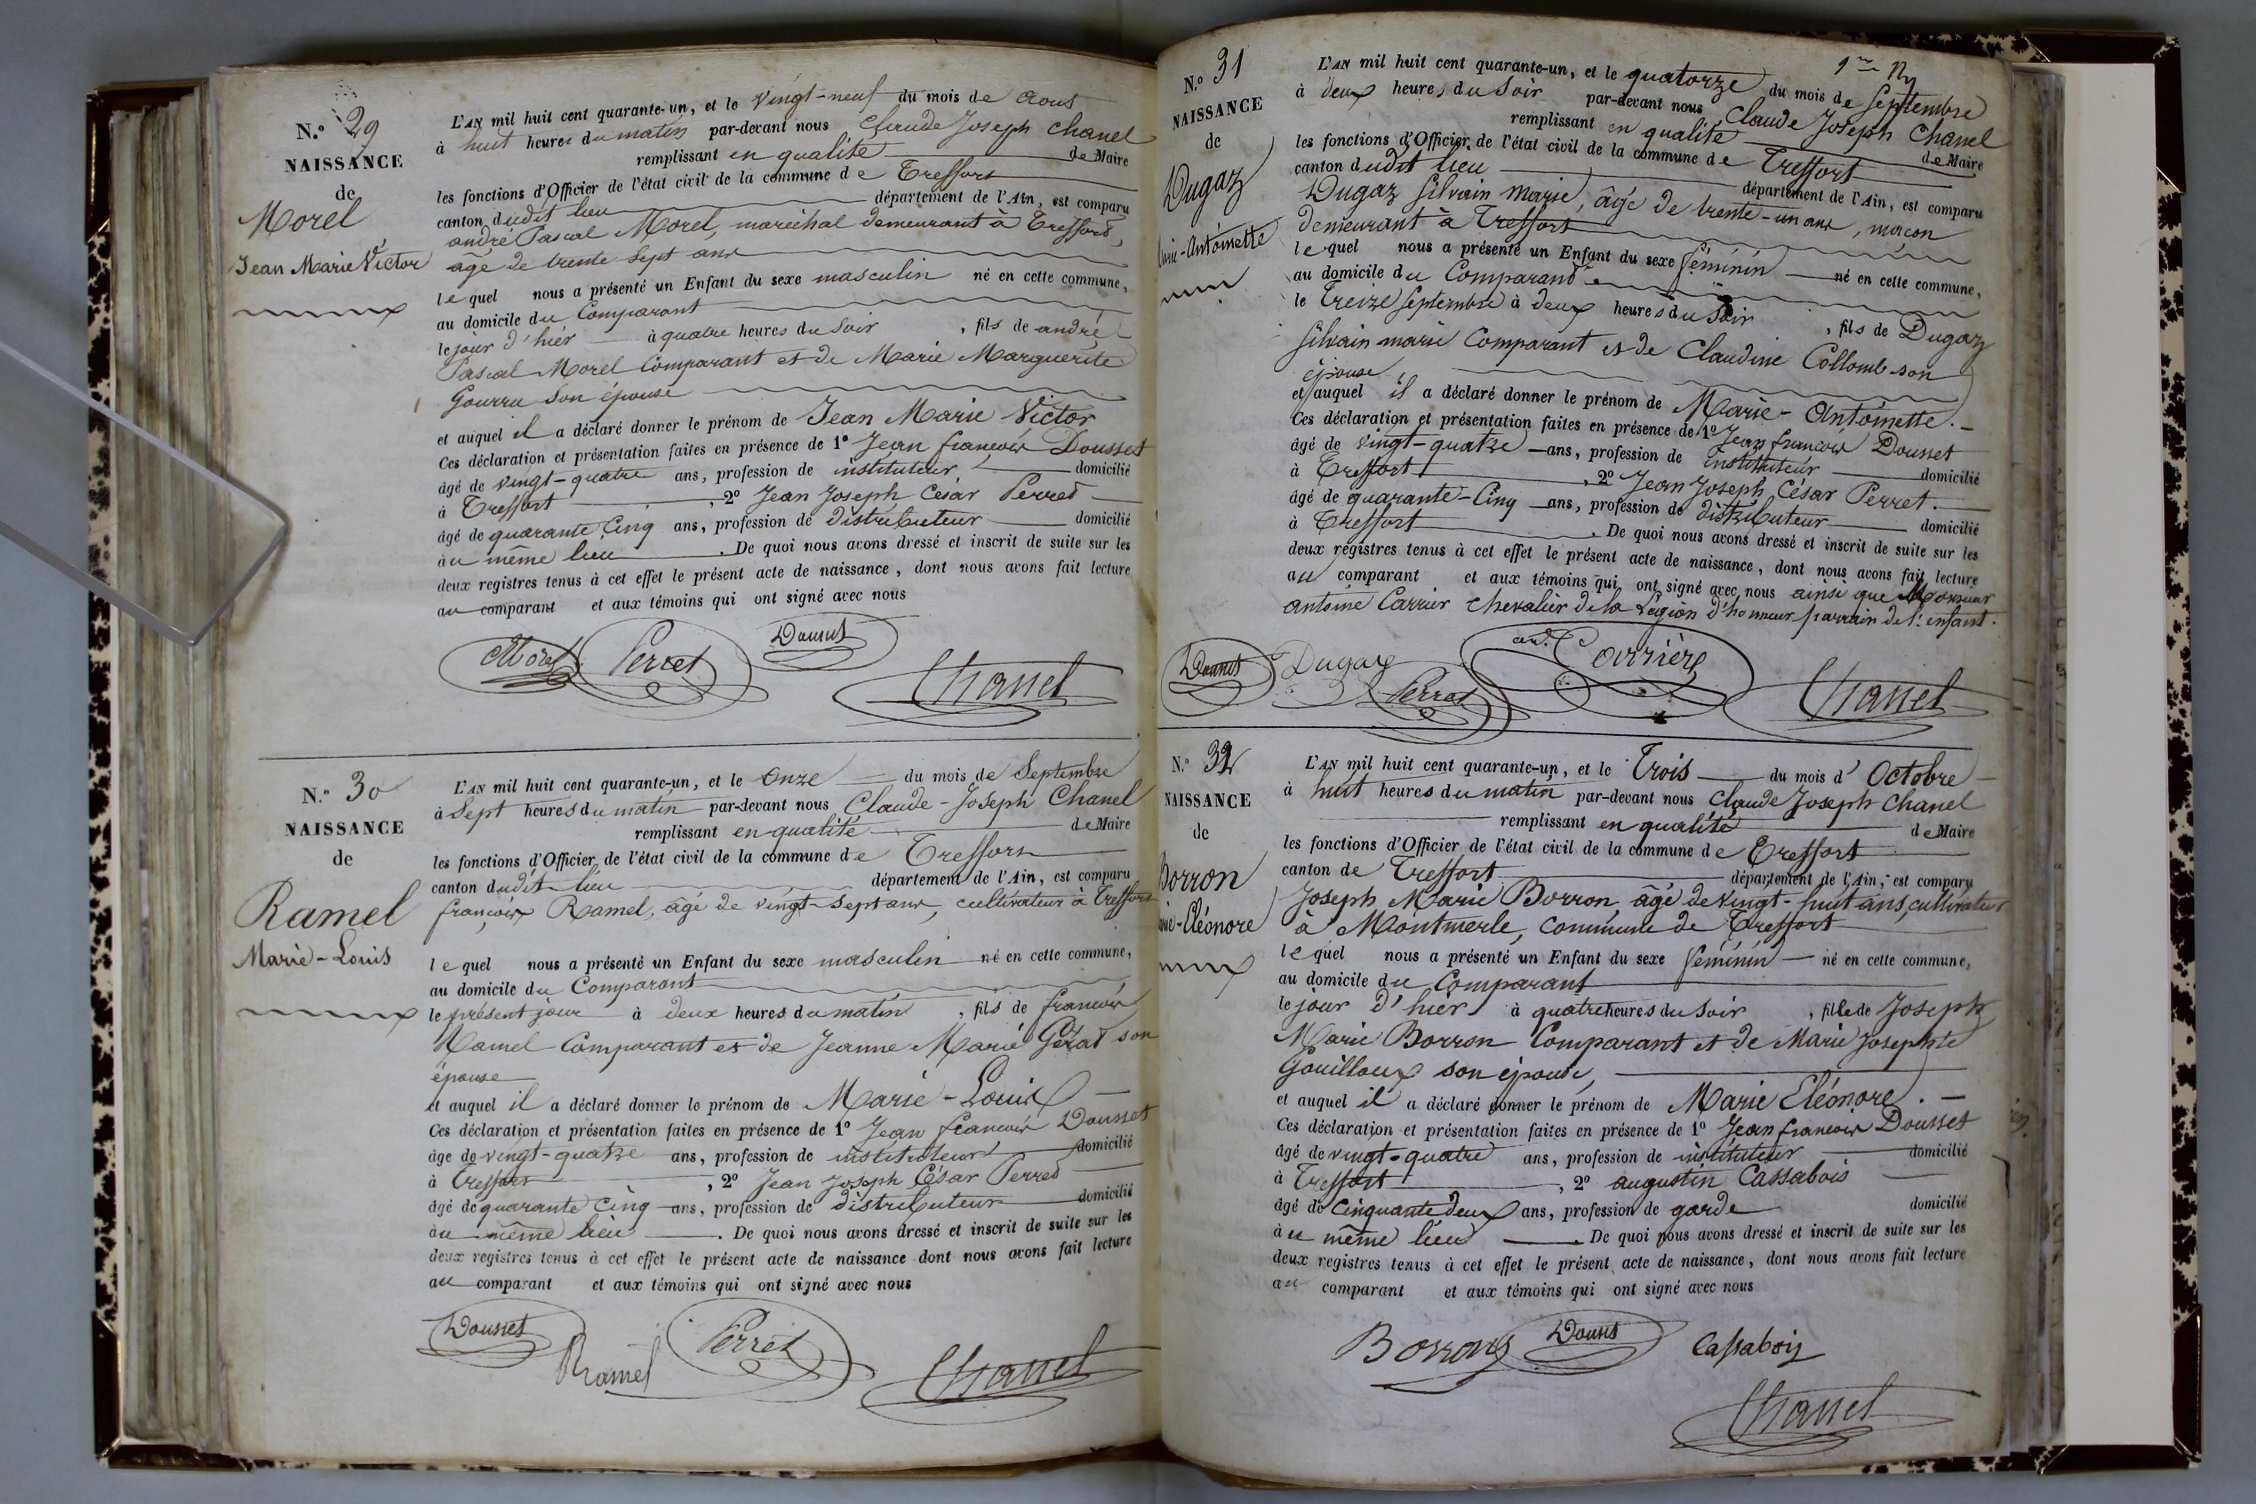 N.o 29
NAISSANCE
de
Morel
Jean Marie Victor
L'AN mil huit cent quarante-un, et le vingt-neuf du mois de aout
à huit heures du matin par-devant nous Claude Joseph Chanel
remplissant en qualité de Maire
les fonctions d'Officier de l'état civil de la commune de Treffort
canton dudit lieu département de l'Ain, est comparu
andré Pascal Morel, maréchal demeurant à Treffort,
âgé de trente sept ans
lequel nous a présenté un Enfant du sexe masculin né en cette commune,
au domicile du Comparant
le jour d'hier à quatre heures du soir, fils de andré
Pascal Morel Comparant et de Marie Marguerite
Gourru son épouse
et auquel il a déclaré donner le prénom de Jean Marie Victor
Ces déclaration et présentation faites en présence de 1o Jean francois Dousset
âgé de vingt-quatre ans, profession de instituteur domicilié
à Treffort, 2o Jean Joseph César Perret
âgé de quarante Cinq ans, profession de distributeur domicilié
au même lieu. De quoi nous avons dressé et inscrit de suite sur les
deux registres tenus à cet effet le présent acte de naissance, dont nous avons fait lecture
au comparant et aux témoins qui ont signé avec nous
Morel Perret Dousset
Chanel
N.o 30
NAISSANCE
de
Ramel
Marie-Louis
L'AN mil huit cent quarante-un, et le Onze du mois de Septembre
à Sept heures du matin par-devant nous Claude-Joseph Chanel
remplissant en qualité de Maire
les fonctions d'Officier de l'état civil de la commune de Treffort
canton dudit lieu département de l'Ain, est comparu
françois Ramel, âgé de vingt-sept ans, cultivateur à Treffort
lequel nous a présenté un Enfant du sexe masculin né en cette commune,
au domicile du Comparant
le présent jour à deux heures du matin, fils de francois
Ramel Comparant et de Jeanne Marie Gérat son
épouse
et auquel il a déclaré donner le prénom de Marie-Louis
Ces déclaration et présentation faites en présence de 1o Jean francois Dousset
âgé de vingt-quatre ans, profession de instituteur domicilié
à Treffort, 2o Jean Joseph César Perret
âgé de quarante cinq ans, profession de distributeur domicilié
au même lieu. De quoi nous avons dressé et inscrit de suite sur les
deux registres tenus à cet effet le présent acte de naissance dont nous avons fait lecture
au comparant et aux témoins qui ont signé avec nous
Dousset Ramel Perret
Chanel
N.o 31
NAISSANCE
de
Dugaz
Marie-Antoinette
L'AN mil huit cent quarante-un, et le quatorze du mois de Septembre
à deux heures du soir par-devant nous Claude Joseph Chanel
remplissant en qualité de Maire
les fonctions d'Officier de l'état civil de la commune de Treffort
canton dudit lieu département de l'Ain, est comparu
Dugaz Silvain Marie, âgé de trente-un ans, maçon
demeurant à Treffort
lequel nous a présenté un Enfant du sexe féminin né en cette commune,
au domicile du Comparand
le Treize Septembre à deux heures du soir, fils de Dugaz
Silvain marie Comparant et de Claudine Collomb son
épouse,
et auquel il a déclaré donner le prénom de Marie-Antoinette.
Ces déclaration et présentation faites en présence de 1o Jean francois Dousset
âgé de vingt-quatre ans, profession de instituteur domicilié
à Treffort, 2o Jean Joseph César Perret.
âgé de quarante-Cinq ans, profession de distributeur domicilié
à Treffort. De quoi nous avons dressé et inscrit de suite sur les
deux registres tenus à cet effet le présent acte de naissance, dont nous avons fait lecture
au comparant et aux témoins qui ont signé avec nous ainsi que Monsieur
antoine Carrier chevalier de la Légion d'honneur parrain de l'enfant.
Dousset Dugaz Perret ant. Carrière
Chanel
N.o 32
NAISSANCE
de
Borron
Marie-Eléonore
L'AN mil huit cent quarante-un, et le Trois du mois d'Octobre
à huit heures du matin par-devant nous Claude Joseph Chanel
remplissant en qualité de Maire
les fonctions d'Officier de l'état civil de la commune de Treffort
canton de Treffort département de l'Ain, est comparu
Joseph Marie Borron, âgé de vingt-huit ans, cultivateur
à Montmerle, commune de Treffort
lequel nous a présenté un Enfant du sexe féminin né en cette commune,
au domicile du Comparant
le jour d'hier à quatre heures du soir, fille de Joseph
Marie Borron Comparant et de Marie Josephte
Gouilloux son épouse,
et auquel il a déclaré donner le prénom de Marie Eléonore.
Ces déclaration et présentation faites en présence de 1o Jean francois Dousset
âgé de vingt-quatre ans, profession de instituteur domicilié
à Treffort, 2o augustin Cassabois
âgé de Cinquante deux ans, profession de garde domicilié
au même lieu. De quoi nous avons dressé et inscrit de suite sur les
deux registres tenus à cet effet le présent acte de naissance, dont nous avons fait lecture
au comparant et aux témoins qui ont signé avec nous
Borron Dousset Cassabois
Chanel